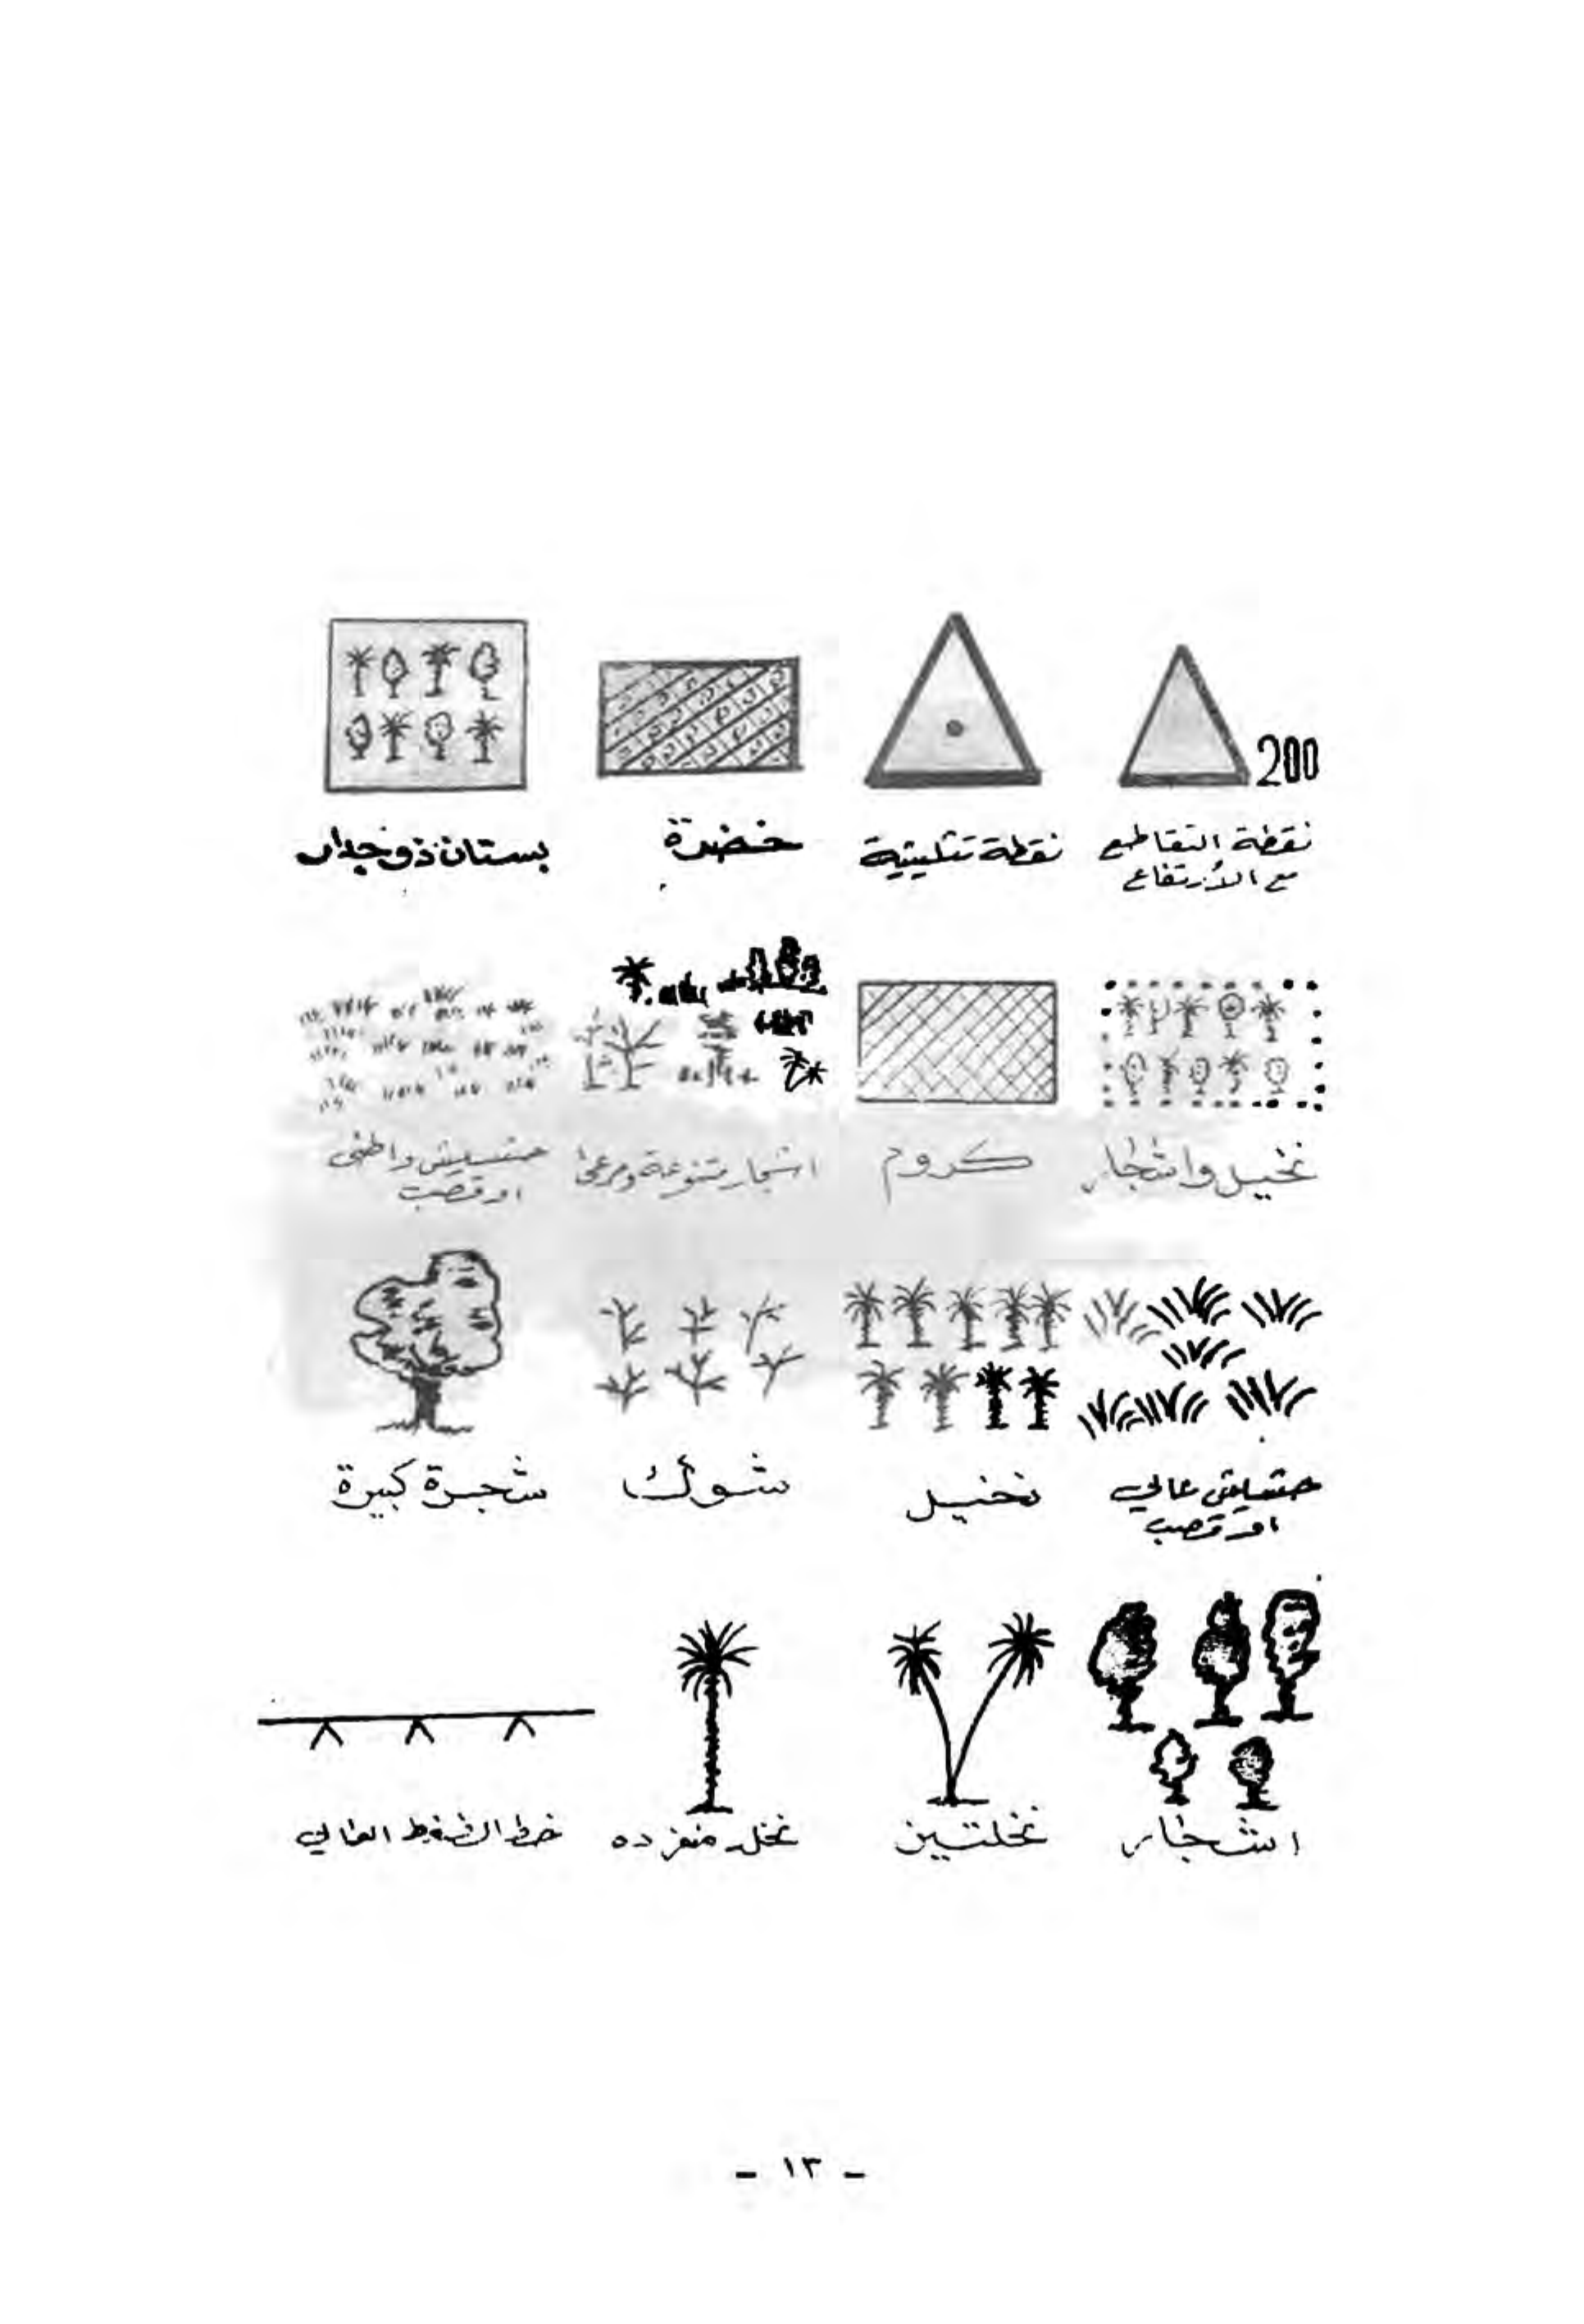 200
نقطة التقاطع
مع الأرتفاع
نقطة تثليثية
خضرة
بستان ذو جدار
نخيل واشجار
كروم
اشجار متنوعة ومرعى
حشيش واطئ
او قصب
حشيش عالي
او قصب
نخيل
شوك
شجرة كبيرة
اشجار
نخلتين
نخله منفرده
خط الضغط العالي
- ١٣ -